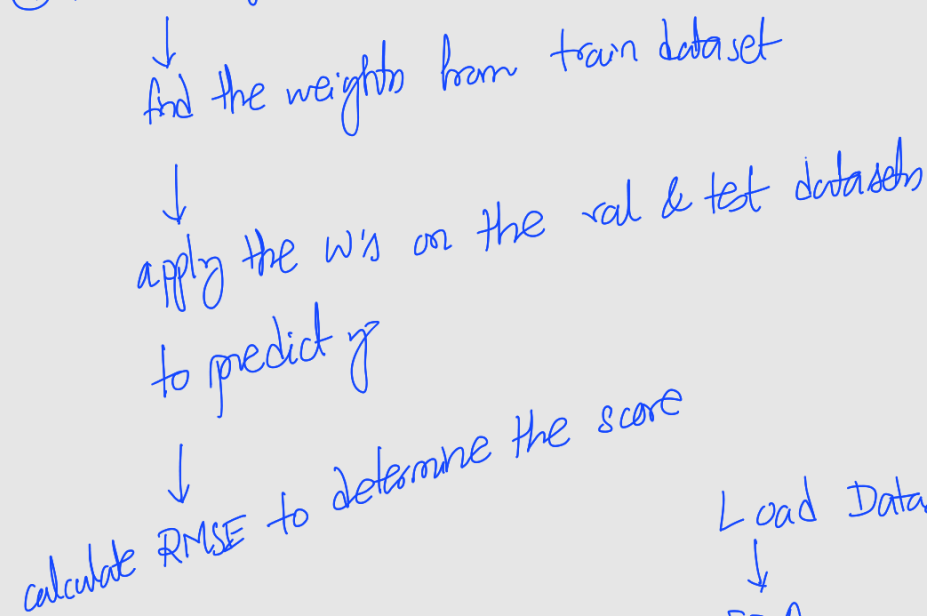 ↓
find the weights from train dataset
↓
apply the w's on the val & test datasets
to predict y
↓
calculate RMSE to determine the score
Load Data
↓